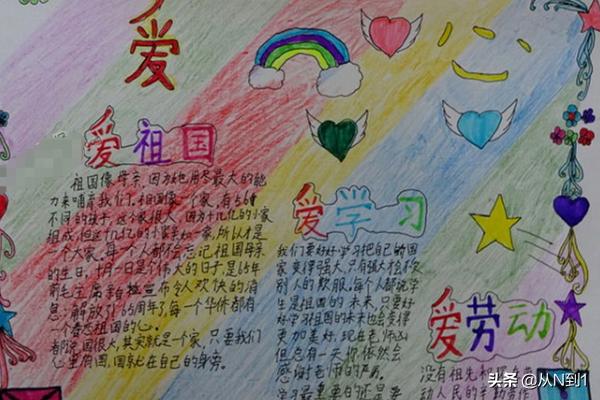 爱
爱祖国
祖国像母亲,因为她用尽最大的能
力来哺育我们,祖国像一个家,有56个
不同的孩子,这个家很大,因为十几亿的小家
组成,但这十几亿的小家紧紧一家,所以才是
一个大家,每一个人都不会忘记祖国母亲
的生日,十月一日是个伟大的日子,是65年
前毛主席亲自宣布令人欢快的消
息:解放了!65周年了,每一个华侨都有
一个眷恋祖国的心。
都说国很大,其实就是一个家,只要我们
心里有国,国就在自己的身旁。
爱学习
我们要好好学习把自己的国
家变得强大,只有强大才不会
别人的欺服,每个人都说学
生是祖国的未来,只要好
好学习祖国的未来也会变得
更加美好,现在老师
但总有一天你依然会
感谢老师的严厉。
学习最重要的还是要
爱劳动
没有祖先和
动人民的辛勤劳作
头条@从N到1